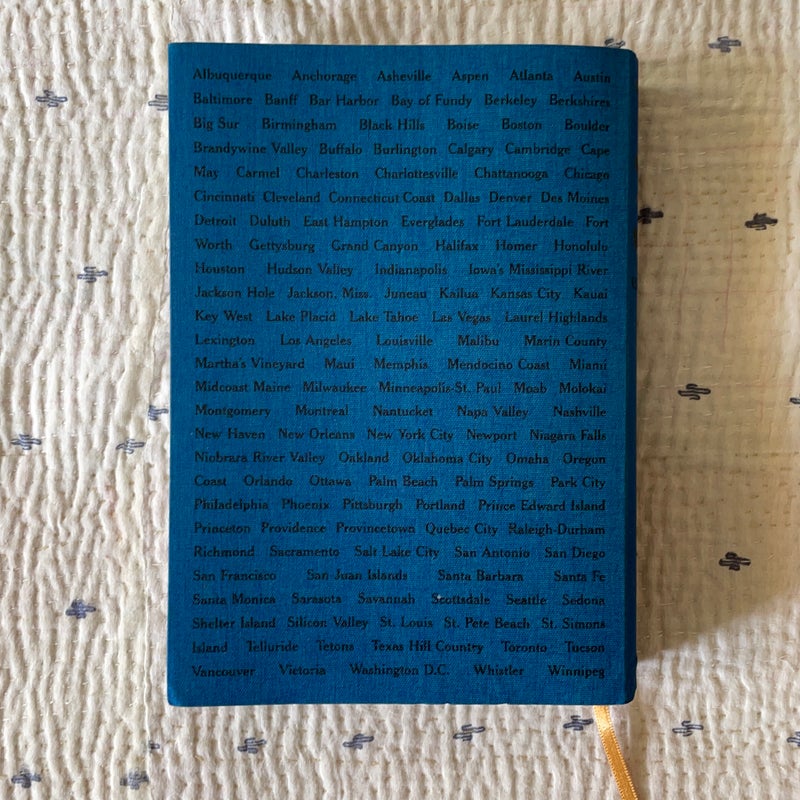 Albuquerque Anchorage Asheville Aspen Atlanta Austin
Baltimore Banff Bar Harbor Bay of Fundy Berkeley Berkshires
Big Sur Birmingham Black Hills Boise Boston Boulder
Brandywine Valley Buffalo Burlington Calgary Cambridge Cape
May Carmel Charleston Charlottesville Chattanooga Chicago
Cincinnati Cleveland Connecticut Coast Dallas Denver Des Moines
Detroit Duluth East Hampton Everglades Fort Lauderdale Fort
Worth Gettysburg Grand Canyon Halifax Homer Honolulu
Houston Hudson Valley Indianapolis Iowa's Mississippi River
Jackson Hole Jackson, Miss. Juneau Kailua Kansas City Kauai
Key West Lake Placid Lake Tahoe Las Vegas Laurel Highlands
Lexington Los Angeles Louisville Malibu Marin County
Martha's Vineyard Maui Memphis Mendocino Coast Miami
Midcoast Maine Milwaukee Minneapolis-St. Paul Moab Molokai
Montgomery Montreal Nantucket Napa Valley Nashville
New Haven New Orleans New York City Newport Niagara Falls
Niobrara River Valley Oakland Oklahoma City Omaha Oregon
Coast Orlando Ottawa Palm Beach Palm Springs Park City
Philadelphia Phoenix Pittsburgh Portland Prince Edward Island
Princeton Providence Provincetown Quebec City Raleigh-Durham
Richmond Sacramento Salt Lake City San Antonio San Diego
San Francisco San Juan Islands Santa Barbara Santa Fe
Santa Monica Sarasota Savannah Scottsdale Seattle Sedona
Shelter Island Silicon Valley St. Louis St. Pete Beach St. Simons
Island Telluride Tetons Texas Hill Country Toronto Tucson
Vancouver Victoria Washington D.C. Whistler Winnipeg